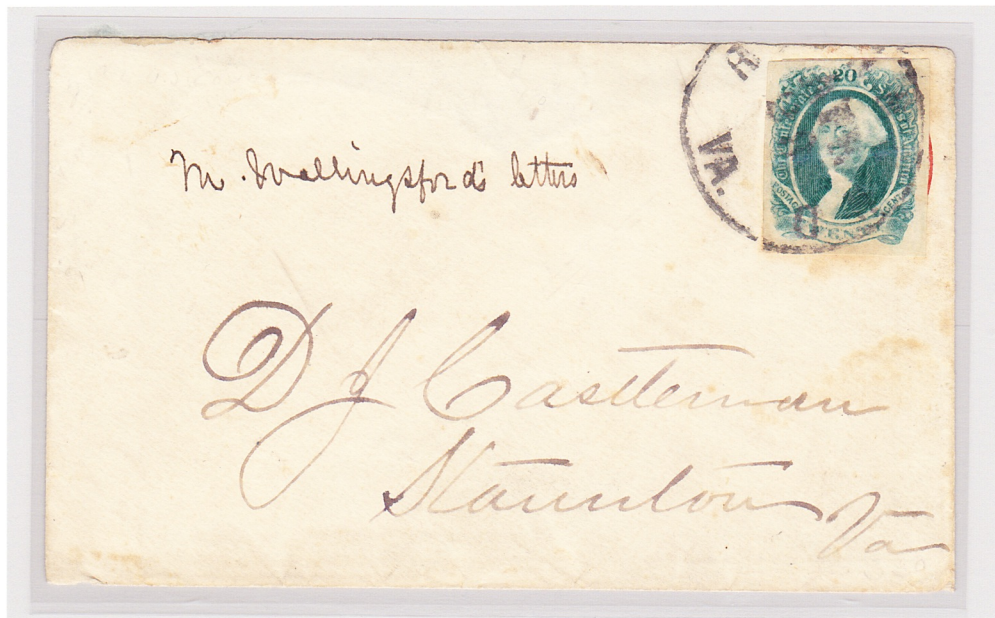 20
R
VA.
D
M. Wallingsford's letters
D J Castleman
Staunton Va